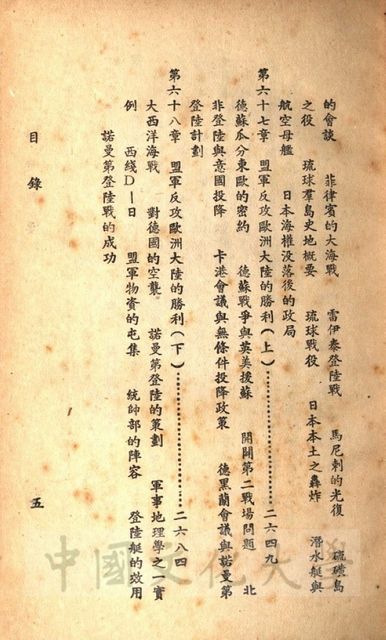 的會談　菲律賓的大海戰　雷伊泰登陸戰　馬尼剌的光復　硫磺島
之役　琉球羣島史地概要　琉球戰役　日本本土之轟炸　潛水艇與
航空母艦　日本海權没落後的政局
第六十七章　盟軍反攻歐洲大陸的勝利(上)…………………二六四九
德蘇瓜分東歐的密約　德蘇戰爭與英美援蘇　開闢第二戰場問題　北
非登陸與意國投降　卡港會議與無條件投降政策　德黑蘭會議與諾曼第
登陸計劃
第六十八章　盟軍反攻歐洲大陸的勝利(下)…………………二六八四
大西洋海戰　對德國的空襲　諾曼第登陸的策劃　軍事地理學之一實
例　西綫D－日　盟軍物資的屯集　統帥部的陣容　登陸艇的效用
諾曼第登陸戰的成功
目錄
五
中國文化大學